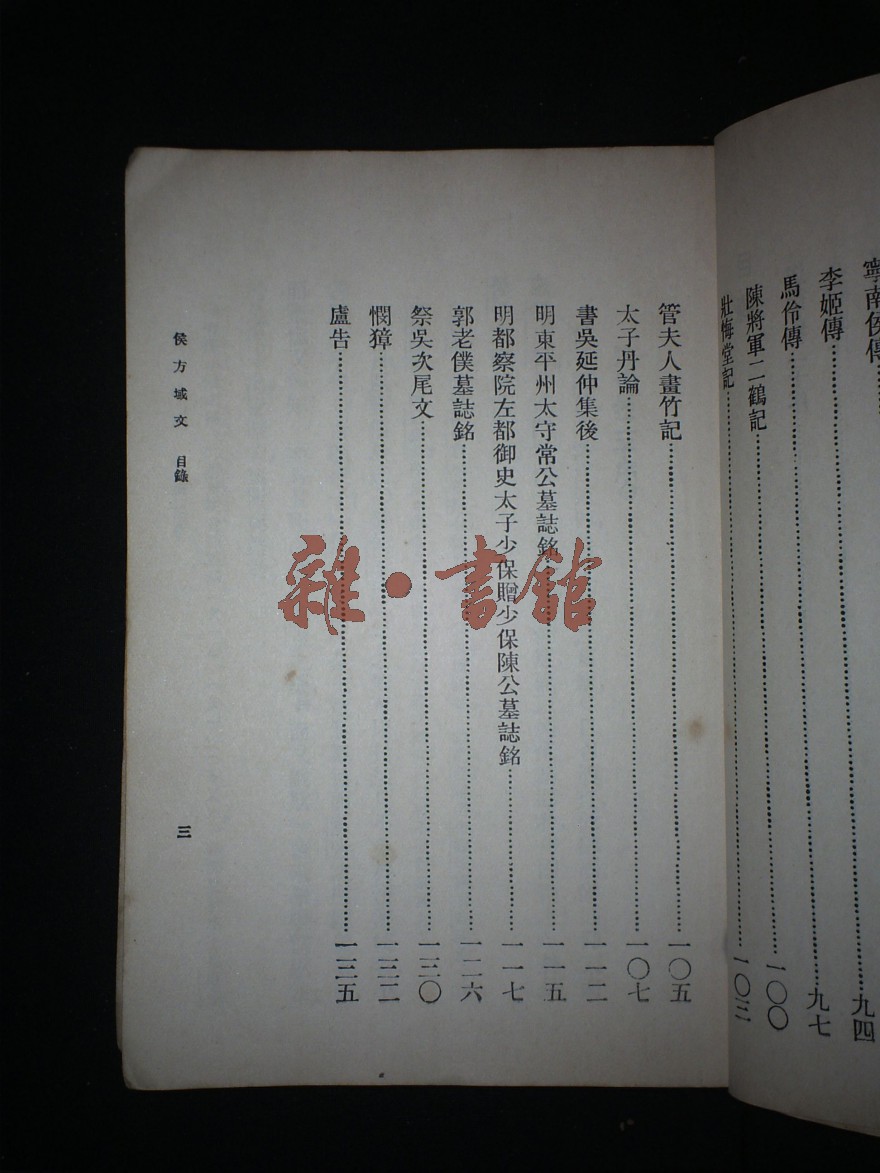 寧南侯傳……九四
李姬傳……九七
馬伶傳……一〇〇
陳將軍二鶴記……一〇二
壯悔堂記……一〇三
管夫人畫竹記……一〇五
太子丹論……一〇七
書吳延仲集後……一一二
明東平州太守常公墓誌銘……一一五
明都察院左都御史太子少保贈少保陳公墓誌銘……一一七
郭老僕墓誌銘……一二六
祭吳次尾文……一三〇
憫獐……一三二
盧告……一三五
侯方域文 目錄
三
雜·書館